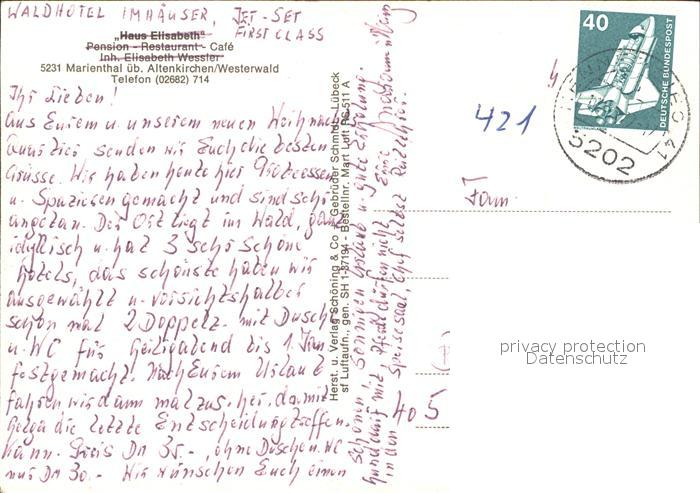 WALDHOTEL IMHÄUSER, JET-SET
FIRST CLASS
„Haus Elisabeth"
Pension - Restaurant - Café
Inh. Elisabeth Wessler
5231 Marienthal üb. Altenkirchen/Westerwald
Telefon (02682) 714
Ihr Lieben!
Aus Eurem u. unserem neuen Weihnachts
quartier senden wir Euch die besten
Grüsse. Wir haben heute hier Probeessen
u. Spazieren gemacht und sind sehr
angetan. Der Ort liegt im Wald, ganz
idyllisch u. hat 3 sehr schöne
Hotels, das schönste haben wir
ausgewählt u. vorsichtshalber
schon mal 2 Doppelz. mit Dusche
u. WC für Heiligabend bis 1. Jan
festgemacht. Nach Eurem Urlaub
fahren wir dann mal zus. her, damit
Helga die letzte Entscheidung treffen
kann. Preis DM 35.-, ohne Dusche u. WC
nur DM 30.- Wir wünschen Euch einen
schönen sonnigen Urlaub u. gute Erholung.
Hunde mit
in den Speisesaal, Chef selbst
Herst. u. Verlag Schöning & Co + Gebrüder Schmidt, Lübeck
sf Luftaufn., gen. SH 1-37194 - Bestellnr. Mart Luft PS 511 A
40
DEUTSCHE BUNDESPOST
5202
421
Fam.
405
privacy protection
Datenschutz